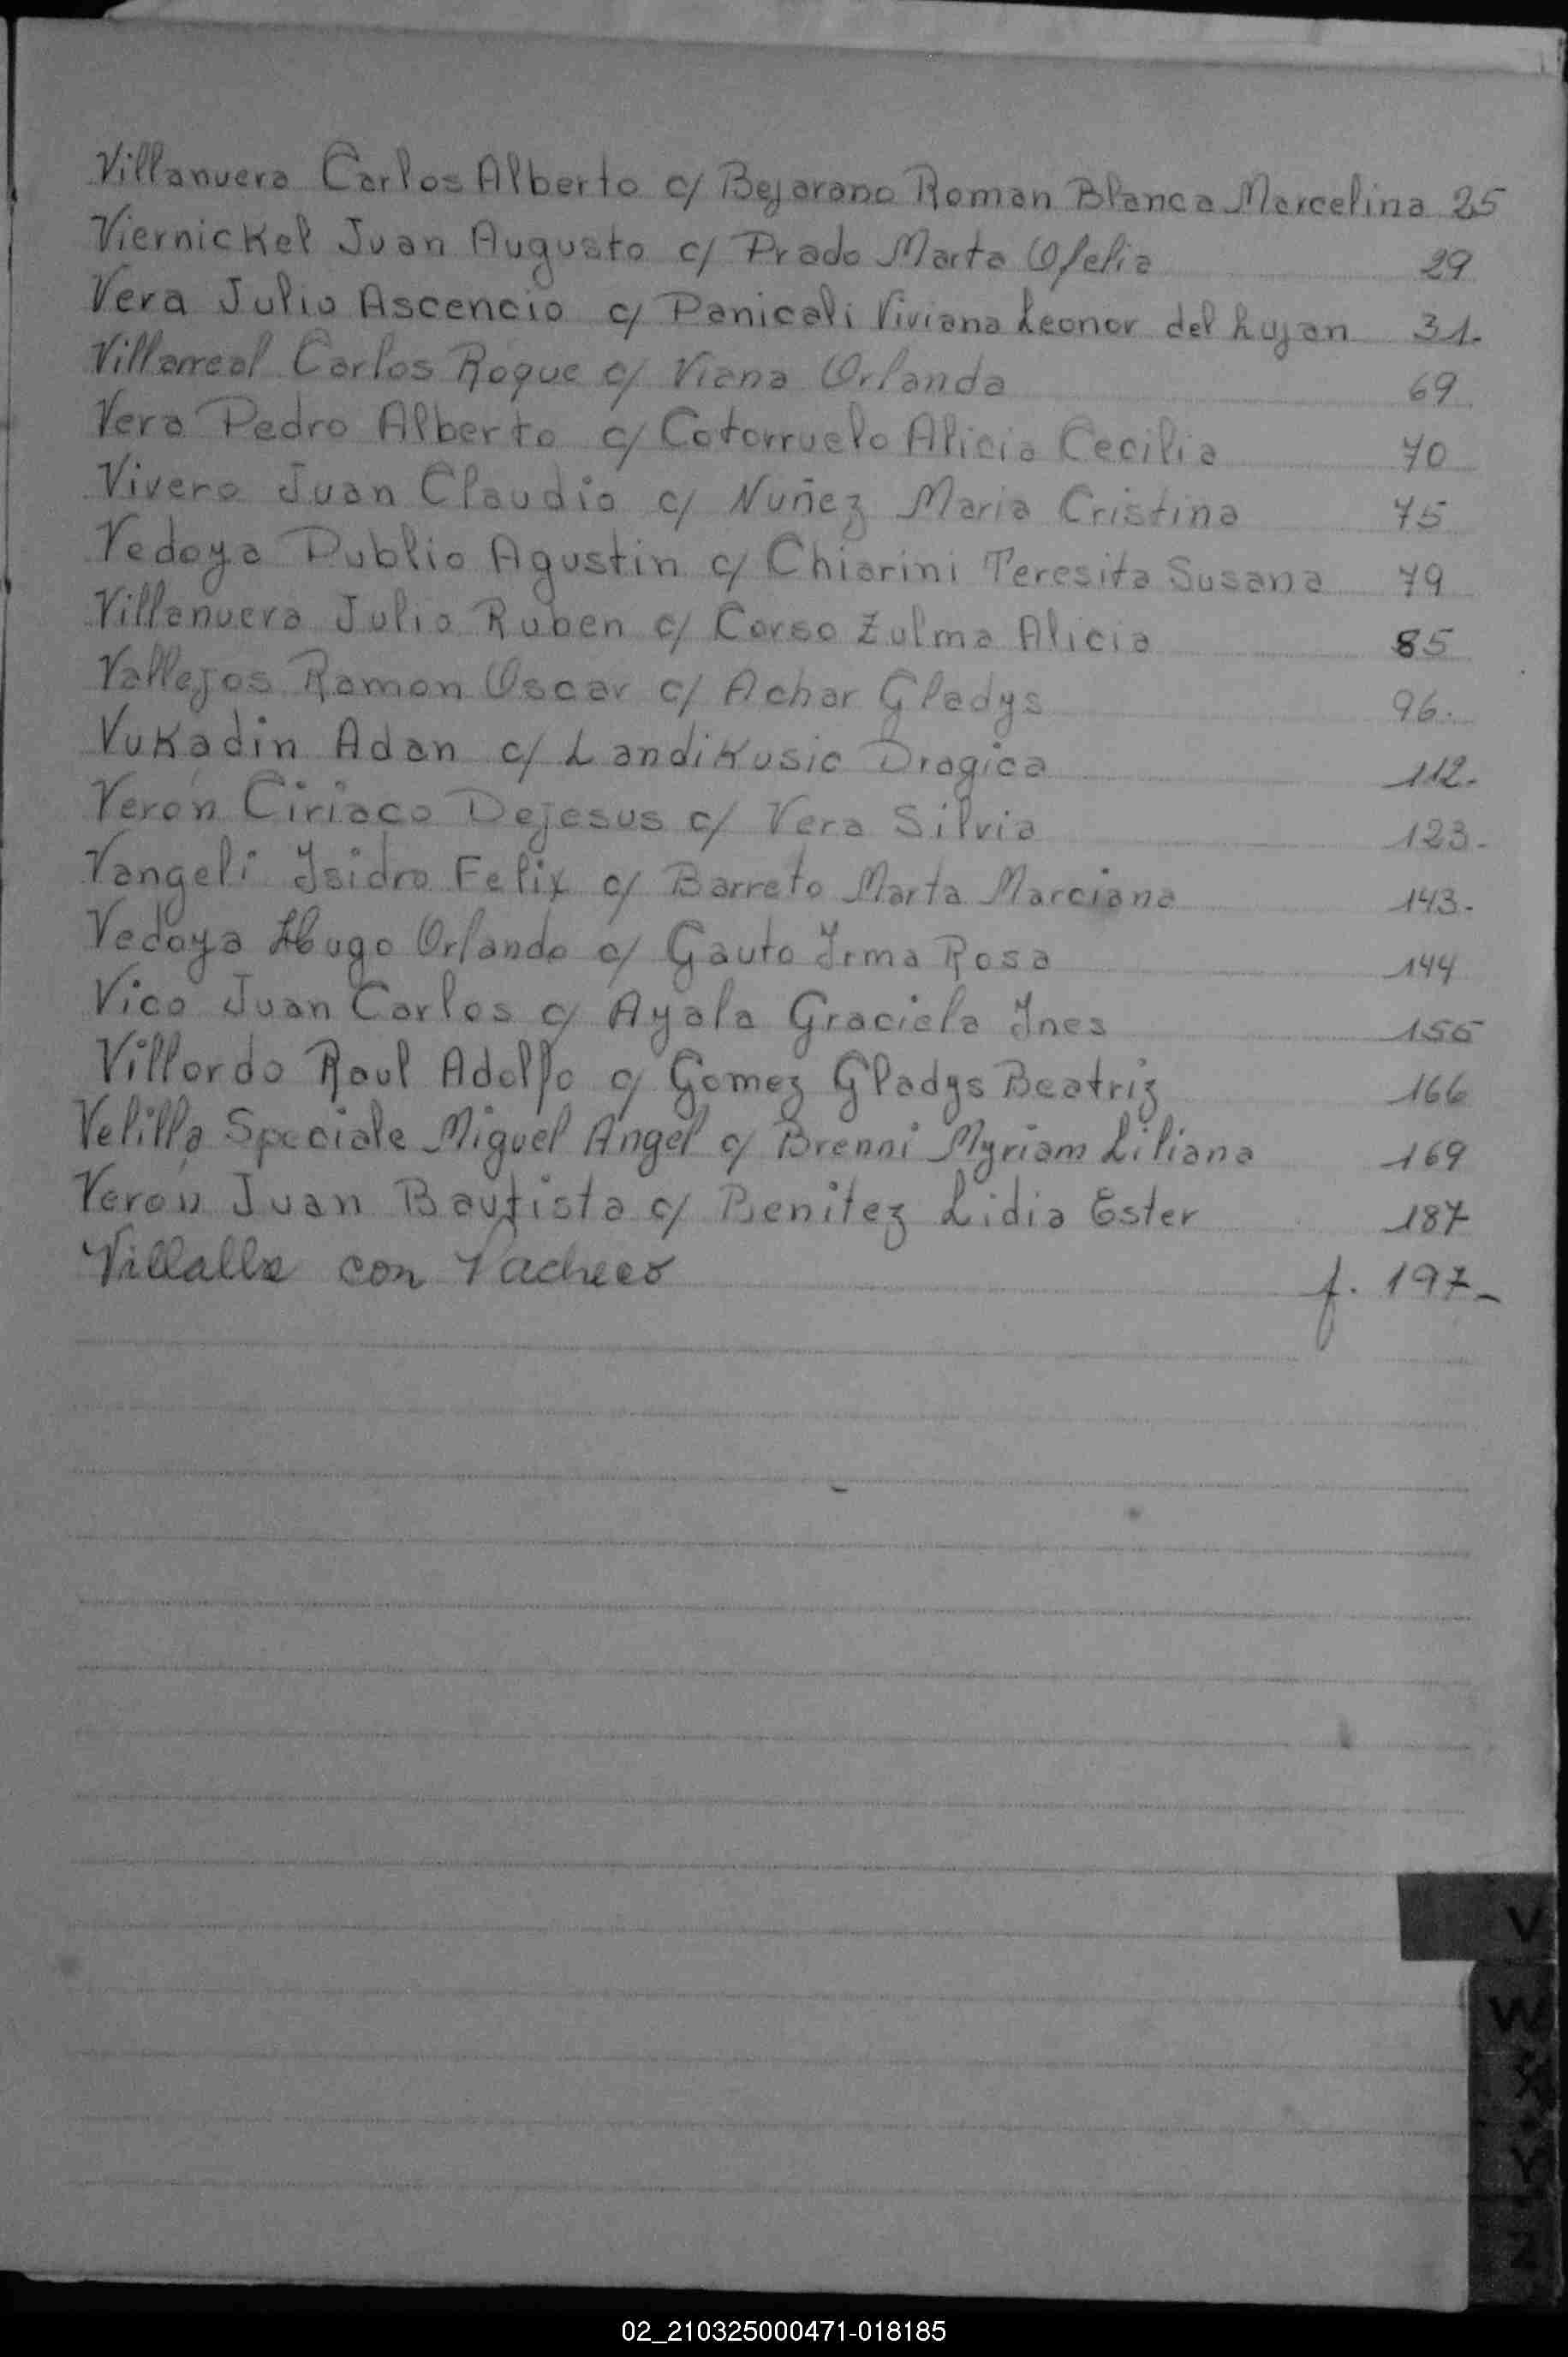 Villanueva Carlos Alberto c/ Bejarano Roman Blanca Marcelina 25
Viernickel Juan Augusto c/ Prado Marta Ofelia 29
Vera Julio Ascencio c/ Panicali Viviana Leonor del Lujan 31.
Villarreal Carlos Roque c/ Viana Orlanda 69
Vera Pedro Alberto c/ Cotorruelo Alicia Cecilia 70
Vivero Juan Claudio c/ Nuñez Maria Cristina 75
Vedoya Publio Agustin c/ Chiarini Teresita Susana 79
Villanueva Julio Ruben c/ Corso Zulma Alicia 85
Vallejos Ramon Oscar c/ Achar Gladys 96.
Vukadin Adan c/ Landikusic Dragica 112.
Verón Ciriaco Dejesus c/ Vera Silvia 123.
Vangeli Isidro Felix c/ Barreto Marta Marciana 143.
Vedoya Hugo Orlando c/ Gauto Irma Rosa 144
Vico Juan Carlos c/ Ayala Graciela Ines 155
Villordo Raul Adolfo c/ Gomez Gladys Beatriz 166
Velilla Speciale Miguel Angel c/ Brenni Myriam Liliana 169
Verón Juan Bautista c/ Benitez Lidia Ester 187
Villalba con Pacheco f. 197_
V
W
X
Y
Z
02_210325000471-018185